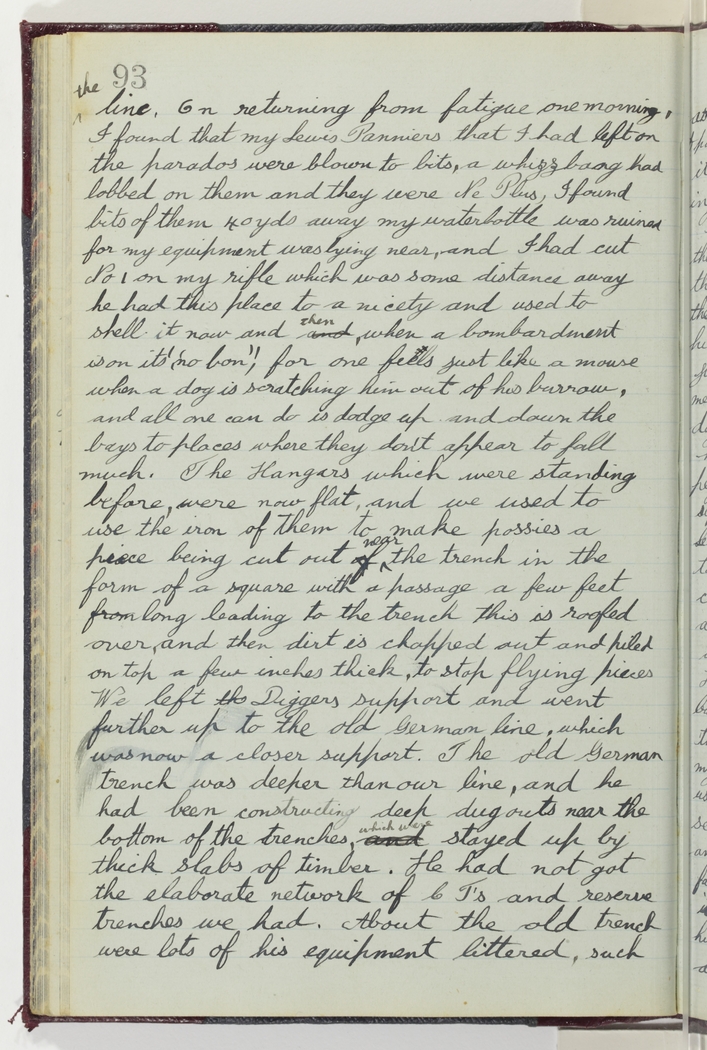 93
the
line. On returning from fatigue one morning,
I found that my Lewis Panniers that I had left on
the parados were blown to bits, a whizz bang had
lobbed on them and they were Ne Plus, I found
bits of them 40 yds away my waterbottle was ruined
for my equipment was lying near, and I had cut
No 1 on my rifle which was some distance away
he had this place to a nicety and used to
shell it now and then and, when a bombardment
is on its "no bon", for one feels just like a mouse
when a dog is scratching him out of his burrow,
and all one can do is dodge up and down the
bays to places where they don't appear to fall
much. The Hangars which were standing
before, were now flat, and we used to
use the iron of them to make possies a
piece being cut out of near the trench in the
form of a square with a passage a few feet
from long leading to the trench this is roofed
over, and then dirt is chopped out and piled
on top a few inches thick, to stop flying pieces
We left the Diggers support and went
further up to the old German line, which
was now a closer support. The old German
trench was deeper than our line, and he
had been constructing deep dugouts near the
bottom of the trenches, which was and stayed up by
thick slabs of timber. He had not got
the elaborate network of C T's and reserve
trenches we had. About the old trench
were lots of his equipment littered, such